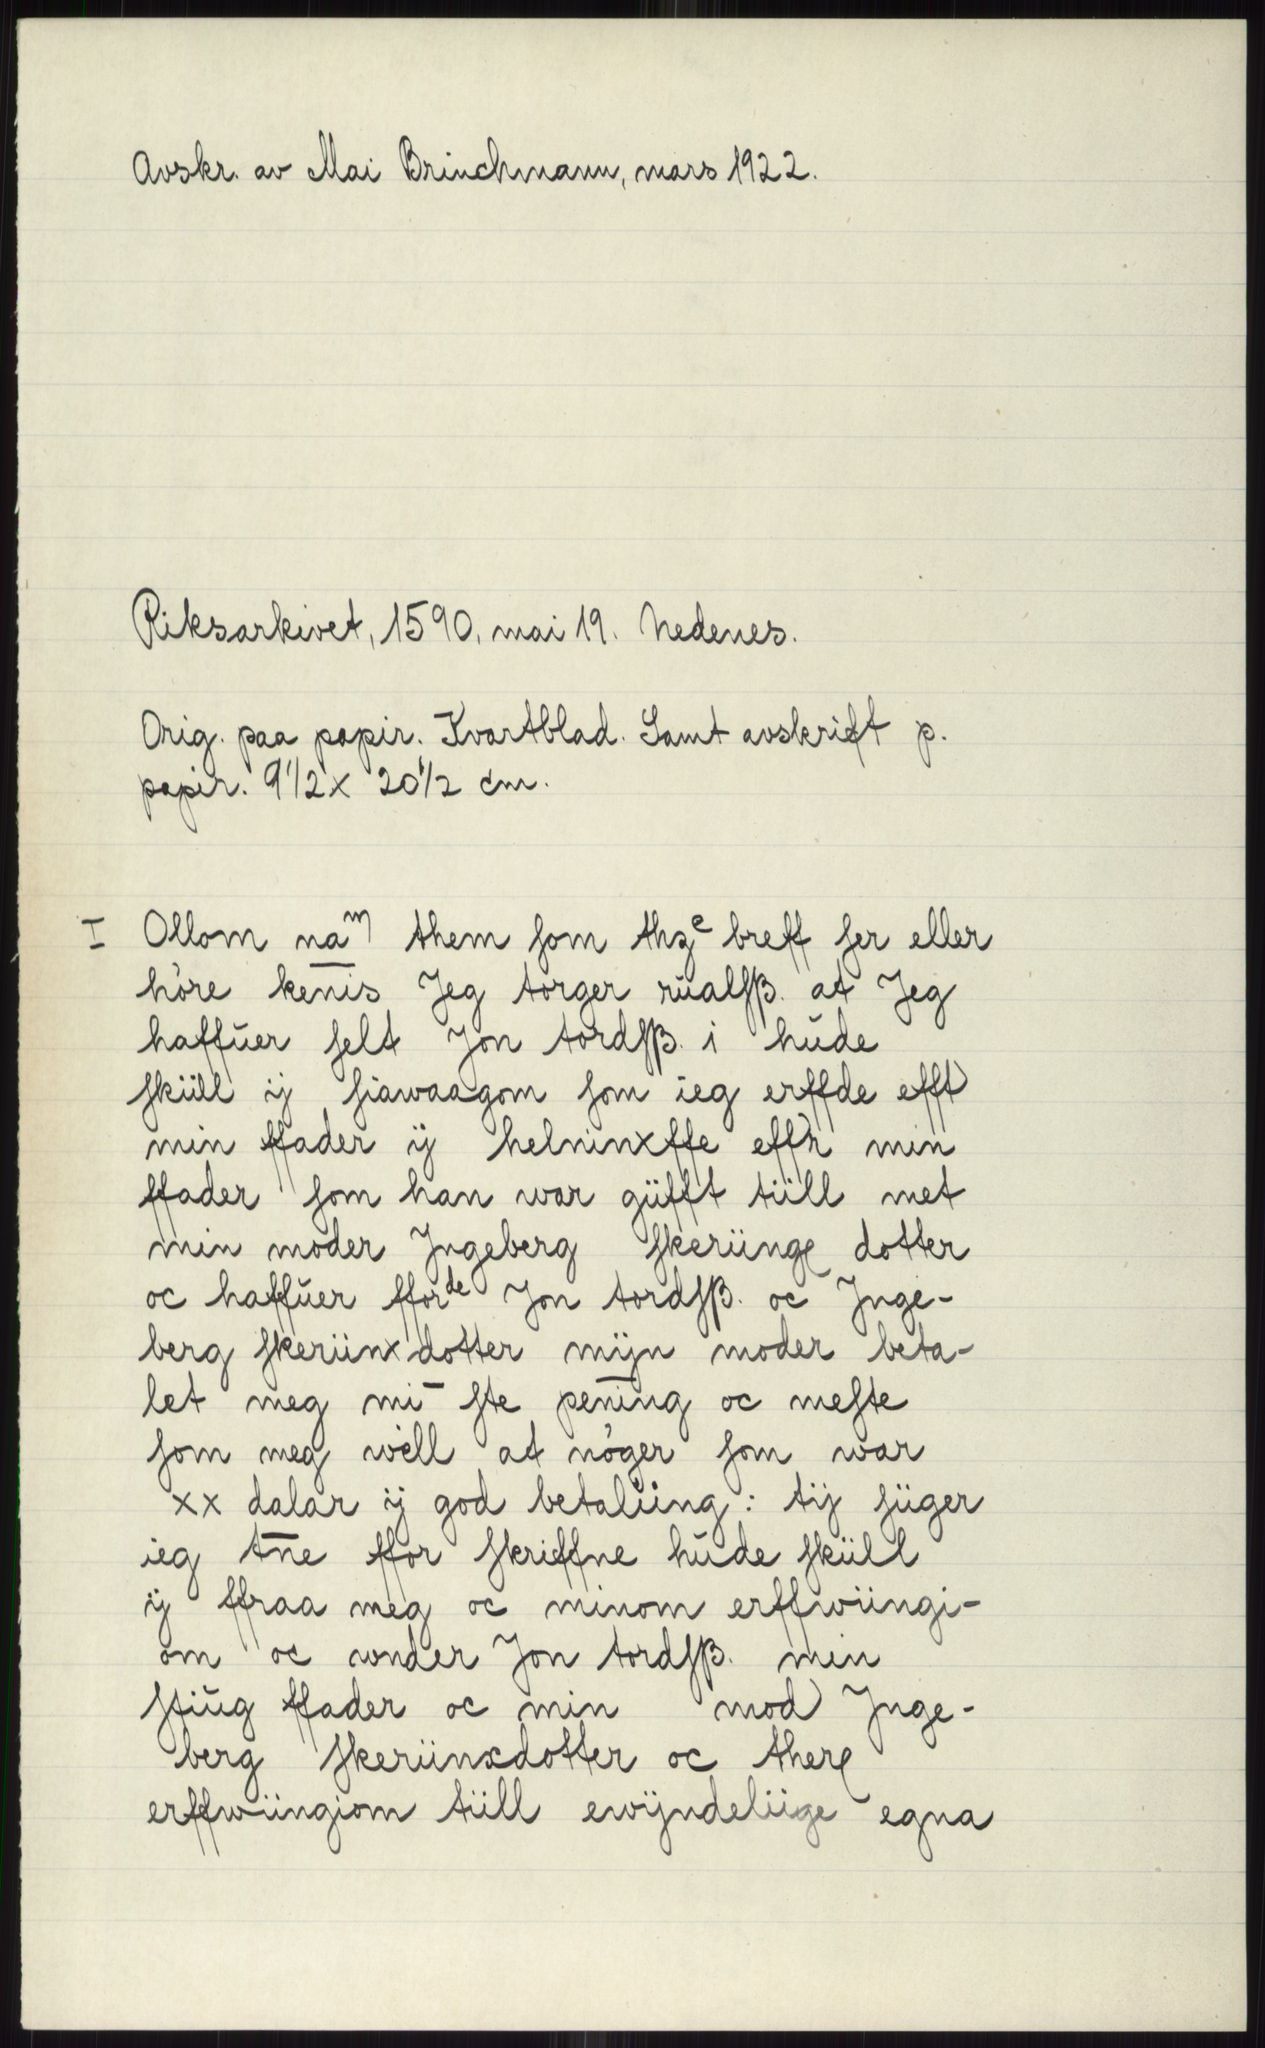 Avskr. av Mai Brinchmann, mars 1922.
Riksarkivet, 1590, mai 19. Nedenes.
Orig. paa papir. Kvartblad. Samt avskrift p.
papir. 9 1/2 x 20 1/2 cm.
I Ollom naᵐ them ſom thzᵉ breff ſer eller
höre kenıs Jeg torger rŭalſß. at Jeg
haffŭer ſelt Jon tordſß. i hŭde
ſküll ij ſiawaagom ſom ieg erffde efft
min ffader ÿ helninxſte effr min
ffader ſom han war güfft tüll met
min moder Jngeberg ſkerünge dotter
oc haffŭer fforᵈᵉ Jon tordſß. oc Jnge-
berg ſkerünxdotter mÿn moder beta-
let meg mi̅ ſte peni̅ng oc meſte
ſom meg well at nöger ſom war
xx dalar ÿ god betalüng: tÿ ſüger
ieg tn̅e ffor ſkriffne hŭde ſküll
ÿ ffraa meg oc minom erffwüngi-
om oc wnder Jon tordſß. min
ſtiŭg ffader oc min mod Jnge-
berg ſkerünxdotter oc there
erffwüngiom tüll ewÿndelüge egna